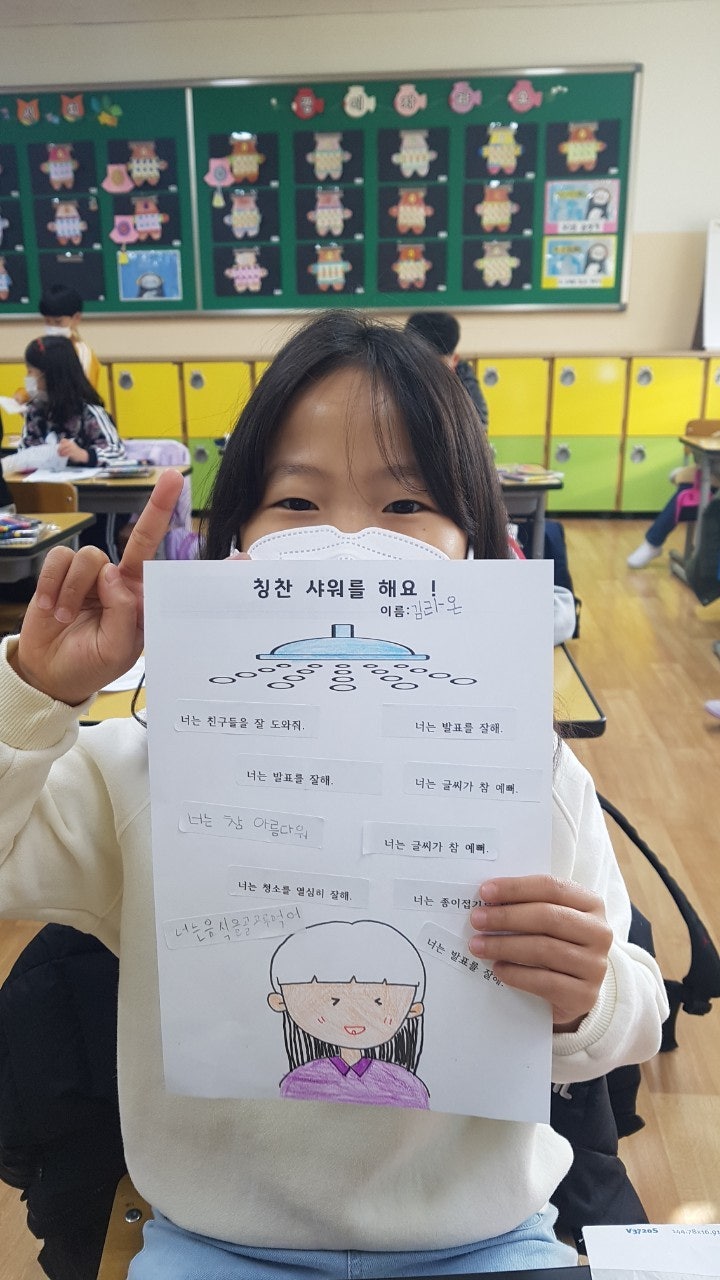 칭찬 샤워를 해요 !
이름:김라온
너는 친구들을 잘 도와줘.
너는 발표를 잘해.
너는 발표를 잘해.
너는 글씨가 참 예뻐.
너는 참 아름다워
너는 글씨가 참 예뻐.
너는 청소를 열심히 잘해.
너는 종이접기
너는음식을골고루먹어
너는 발표를 잘해.
V37205